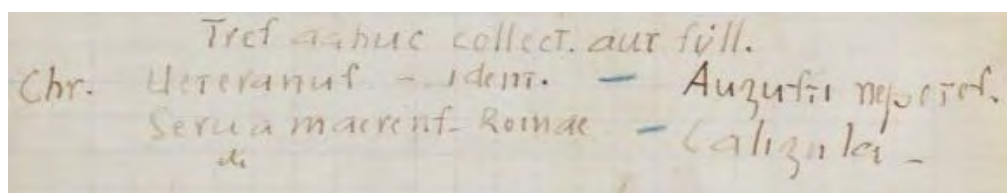 Tres adhuc collect. aut syll.
Chr. Ueteranus - idem. — Augusti nepotes.
Serua maerens - Romae — Caligula -